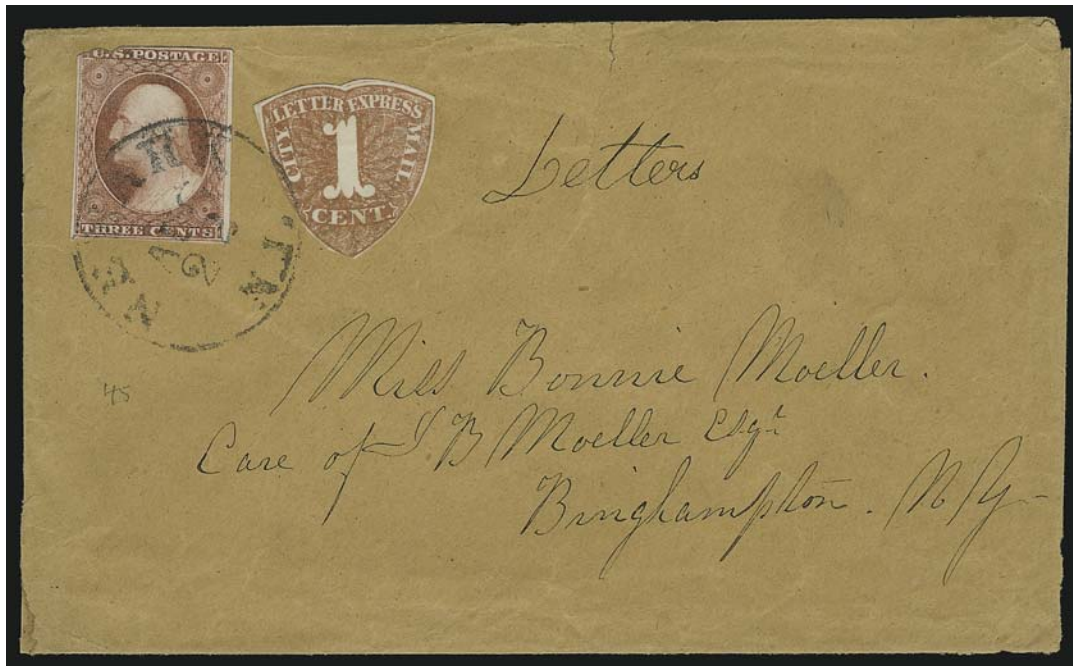 U.S. POSTAGE
THREE CENTS
CITY LETTER EXPRESS MAIL
1
CENT
NEW
AUG
2
Letters
45
Miss Bonnie Moeller.
Care of J B Moeller Esqr
Binghampton. N Y